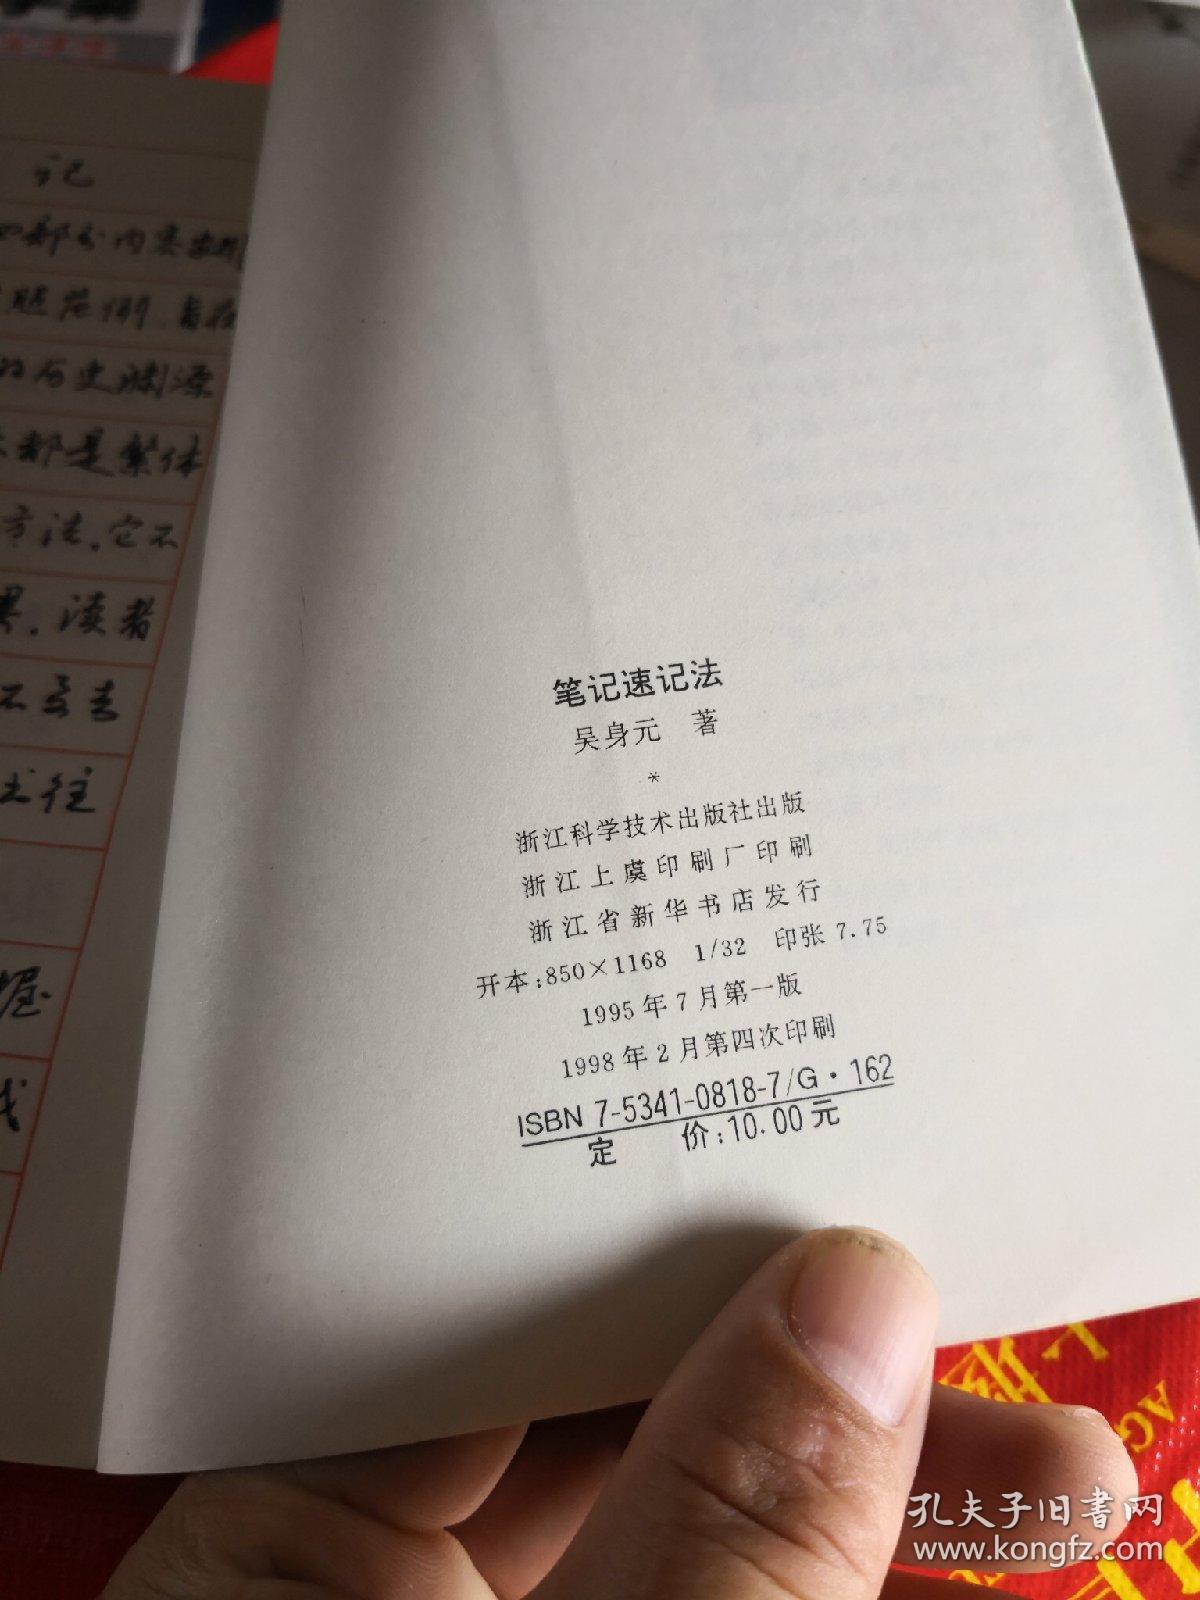 记
四部分内容
照范例.旨在
的历史渊源
都是繁体
方法.它不
果.读者
不妥去
往
握
笔记速记法
吴身元 著
*
浙江科学技术出版社出版
浙江上虞印刷厂印刷
浙江省新华书店发行
开本:850×1168 1/32 印张 7.75
1995年7月第一版
1998年2月第四次印刷
ISBN 7-5341-0818-7/G·162
定 价:10.00元
AG
孔夫子旧书网
www.kongfz.com